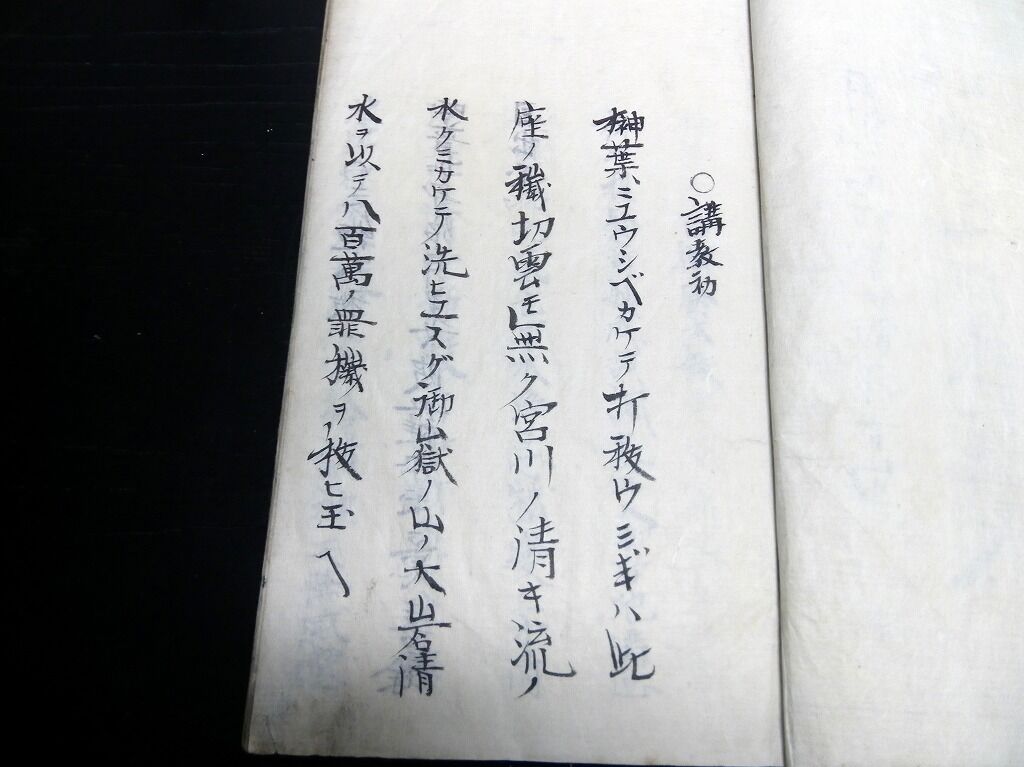 ○講教初
榊葉ミユウシベカケテ打祓ウミギハ此
座ノ穢切雲モ無ク宮川ノ清キ流ノ
水クミカケテ洗ヒユスグ御山獄ノ山ノ大岩清
水ヲ以テ八百萬ノ罪機ヲ祓ヒ玉ヘ